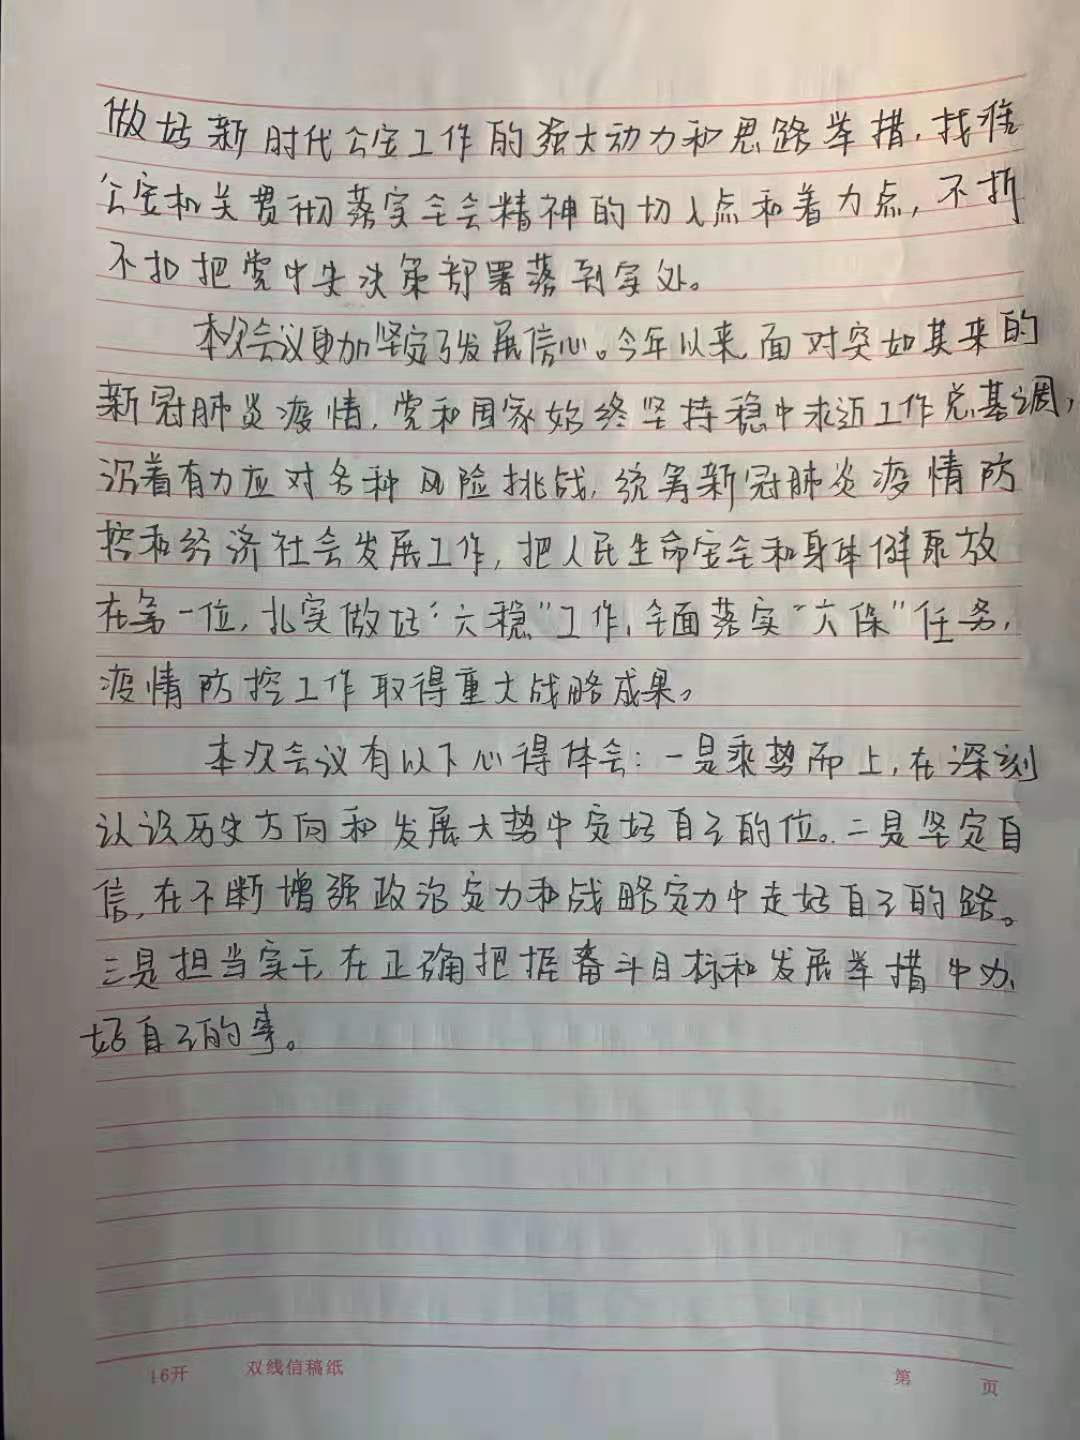 做好新时代公安工作的强大动力和思路举措，找准
公安机关贯彻落实全会精神的切入点和着力点，不折
不扣把党中央决策部署落到实处。
本次会议更加坚定了发展信心。今年以来，面对突如其来的
新冠肺炎疫情，党和国家始终坚持稳中求进工作总基调，
沉着有力应对各种风险挑战，统筹新冠肺炎疫情防
控和经济社会发展工作，把人民生命安全和身体健康放
在第一位，扎实做好“六稳”工作，全面落实“六保”任务，
疫情防控工作取得重大战略成果。
本次会议有以下心得体会：一是乘势而上，在深刻
认识历史方向和发展大势中定好自己的位。二是坚定自
信，在不断增强政治定力和战略定力中走好自己的路。
三是担当实干，在正确把握奋斗目标和发展举措中办
好自己的事。
16开 双线信稿纸 第 页